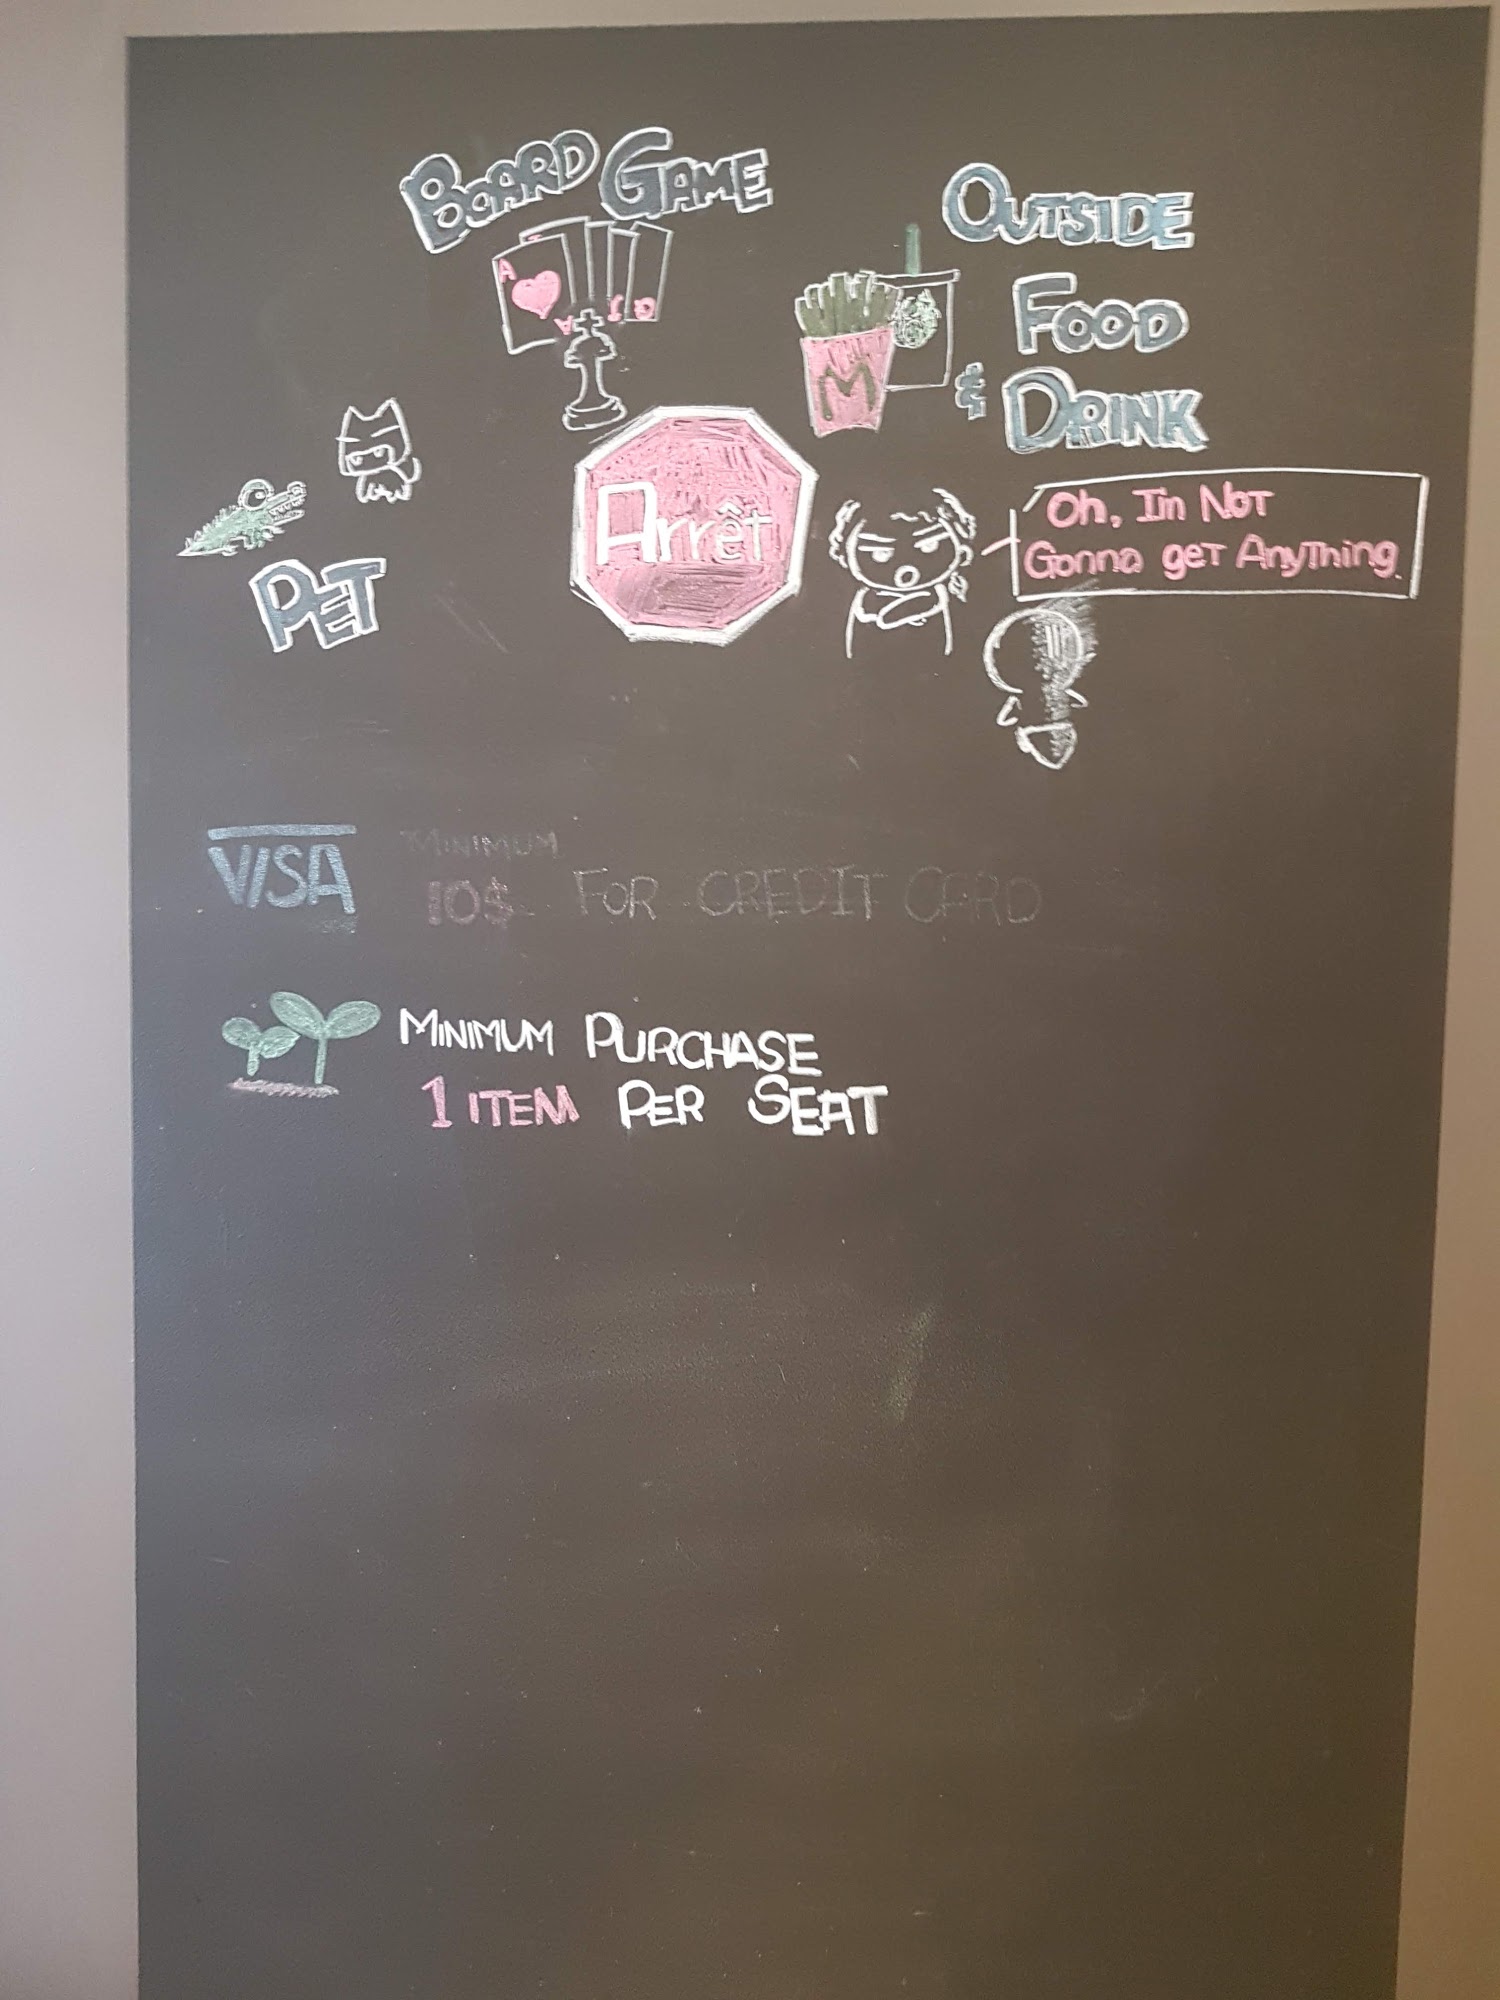 BOARD GAME
A
A J Q
OUTSIDE
FOOD
& DRINK
M
PET
Arrêt
Oh, I'm NOT
Gonna get Anything.
VISA
MINIMUM
10$ FOR CREDIT CARD
MINIMUM PURCHASE
1 ITEM PER SEAT